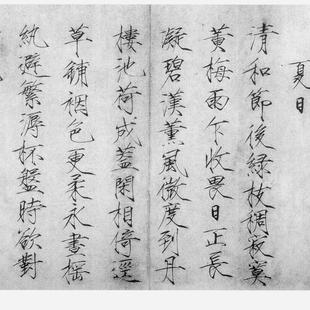 夏日
清和節後綠枝稠寂寞
黃梅雨乍收畏日正長
凝碧漢薰風微度到丹
樓池荷成蓋閑相倚逕
草鋪裀色更柔永晝搖
紈避繁溽杯盤時欲對